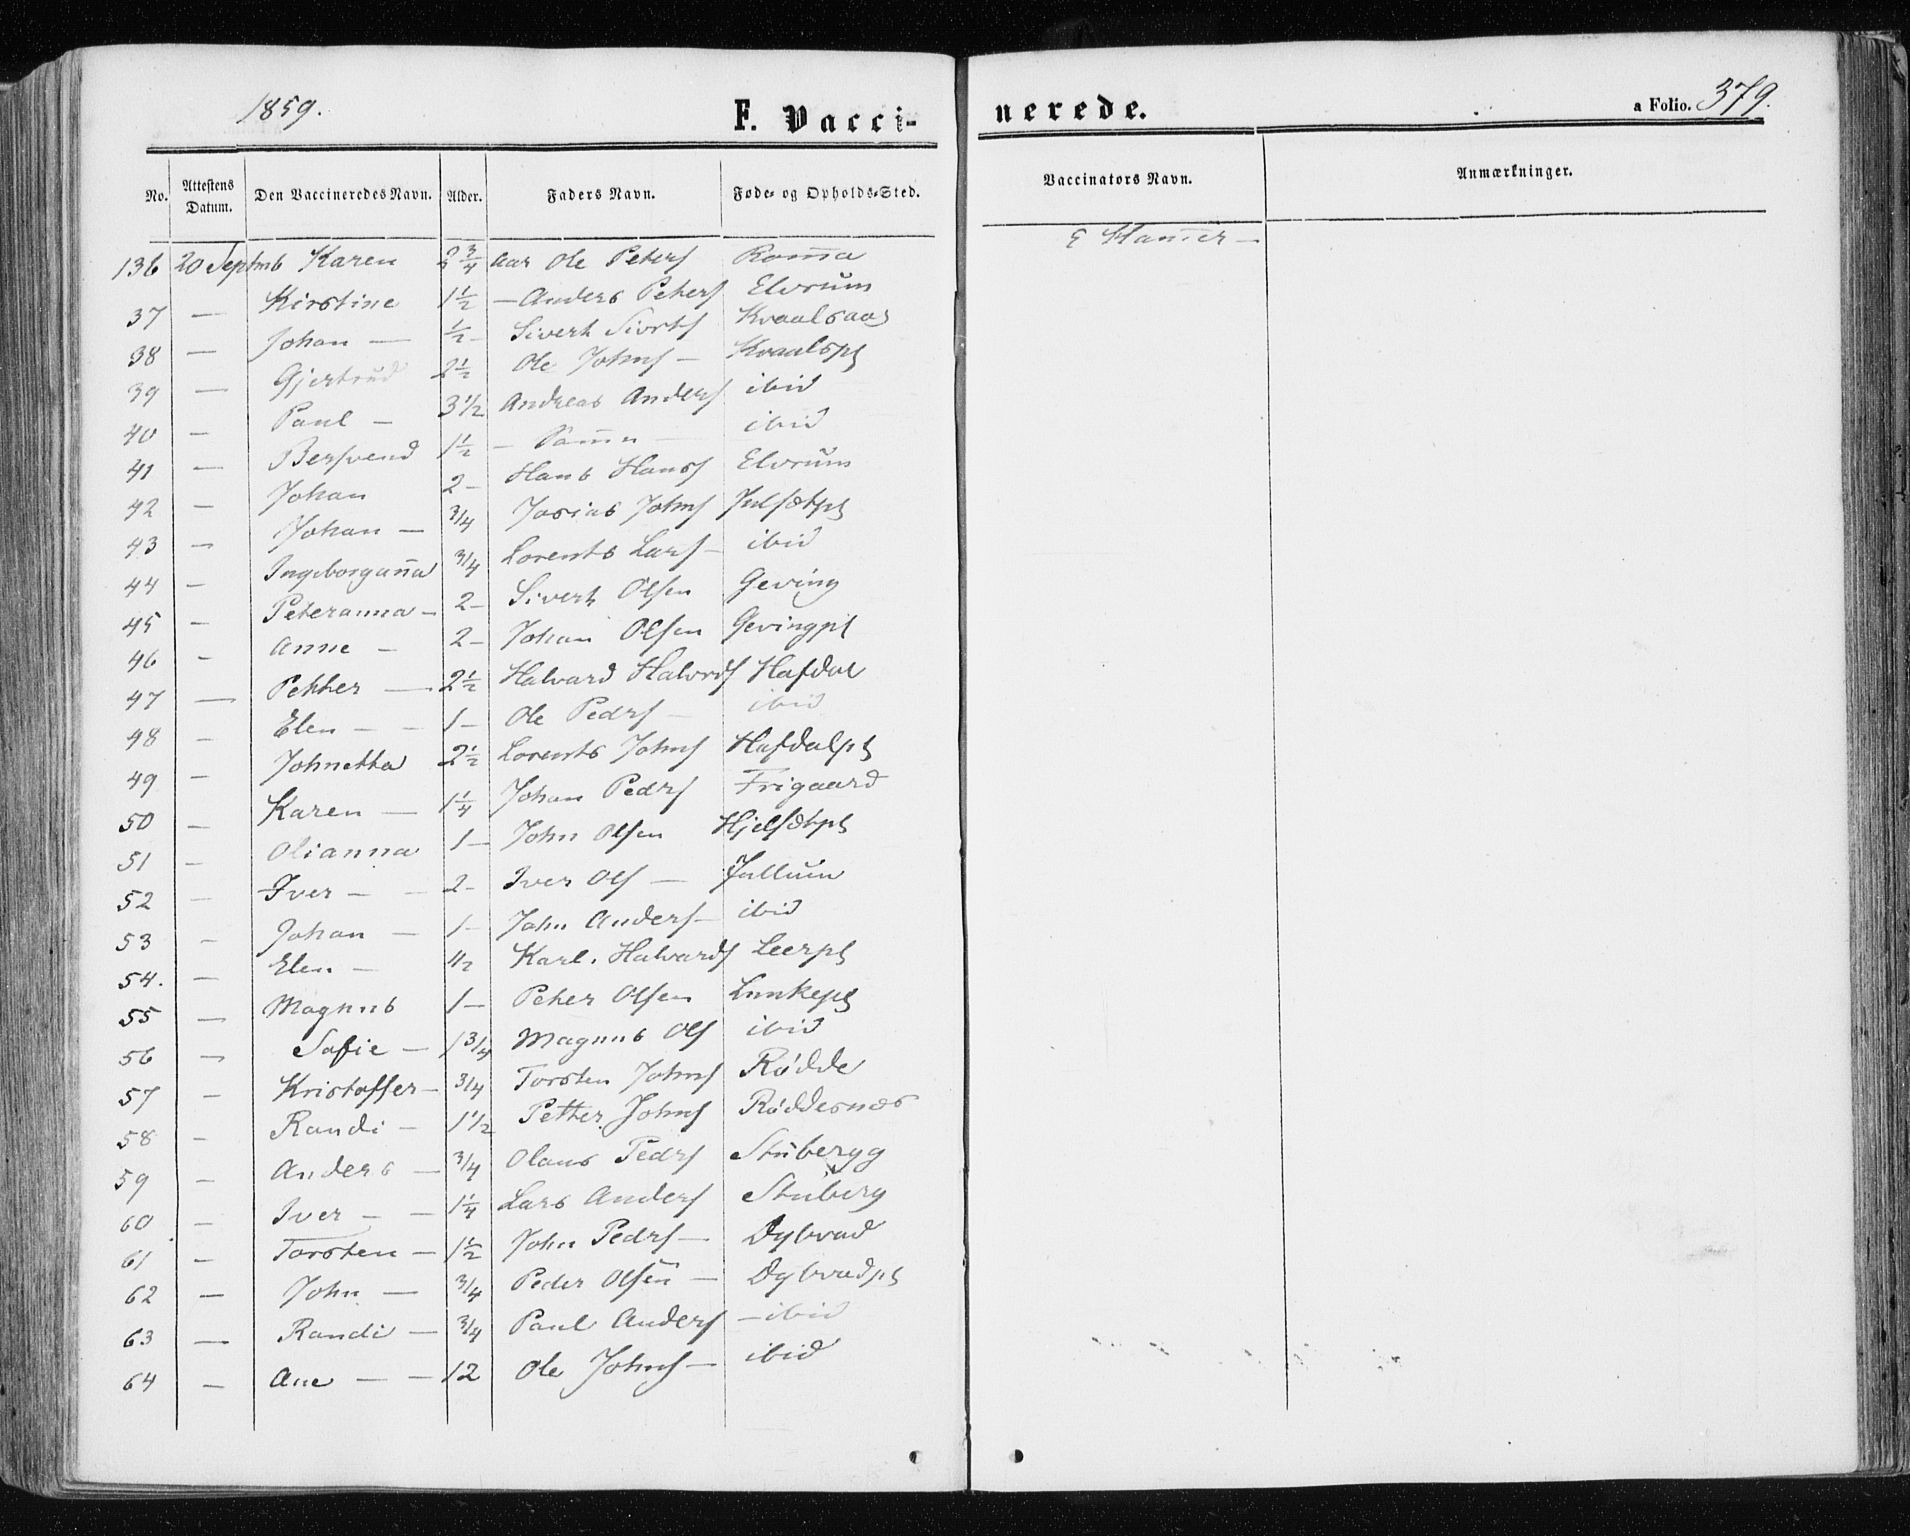 1859. F. Vacci- nerede. a Folio. 379.
No. Attestens Datum. Den Vaccineredes Navn. Alder. Faders Navn. Føde- og Opholds-Sted. Vaccinators Navn. Anmærkninger.
136 20 Septmb Karen 2 3/4 Aar Ole Peters Romma E Hamer —
37 — Kirstine 1 1/2 — Anders Peters Elvrum
38 — Johan — 1/2 — Sivert Sivrts Kvaalsaas
39 — Gjertrud 2 1/2 Ole Johns — Kvaalspl
40 — Paul — 3 1/2 Andreas Anders ibid
41 — Bersvend 1 1/2 — Samm — ibid
42 — Johan 2 — Hans Hans Elvrum
43 — Johan — 3/4 Josias Johns Julsætpl
44 — Ingeborganna 3/4 Lorents Lars — ibid
45 — Peteranna — 2 — Sivert Olsen Geving
46 — Anne — 2 — Johan Olsen Gevingpl
47 — Petter — 2 1/2 Halvard Halvrds Hafdal
48 — Elen — — 1 — Ole Pedrs — ibid
49 — Johnetta 2 1/2 Lorents Johns Hafdalpl
50 — Karen — 1 1/4 Johan Pedrs Frigaard
51 — Olianna 1 — John Olsen Hjelsætpl
52 — Iver — — 2 — Iver Ols — Jullum
53 — Johan — 1 — John Anders — ibid
54. — Elen — 1/2 Karl. Halvards Leerpl
55 — Magnus 1 — Peter Olsen Lunkepl
56 — Sofie — 1 3/4 Magnus Ols ibid
57 — Kristoffer — 3/4 Torsten Johns Rødde
58 — Randi — 1 1/2 Petter Johns Røddesnæs
59 — Anders — 3/4 Olaus Pedrs Stubergg
60 — Iver — — 1 1/4 Lars Anders Stuberg
61 — Torsten — 1 1/2 John Pedrs — Dybvad
62 — John — 3/4 Peder Olsen — Dybvadpl
63 — Randi — 3/4 Paul Anders — ibid
64 — Ane — — 12 Ole Johns — ibid